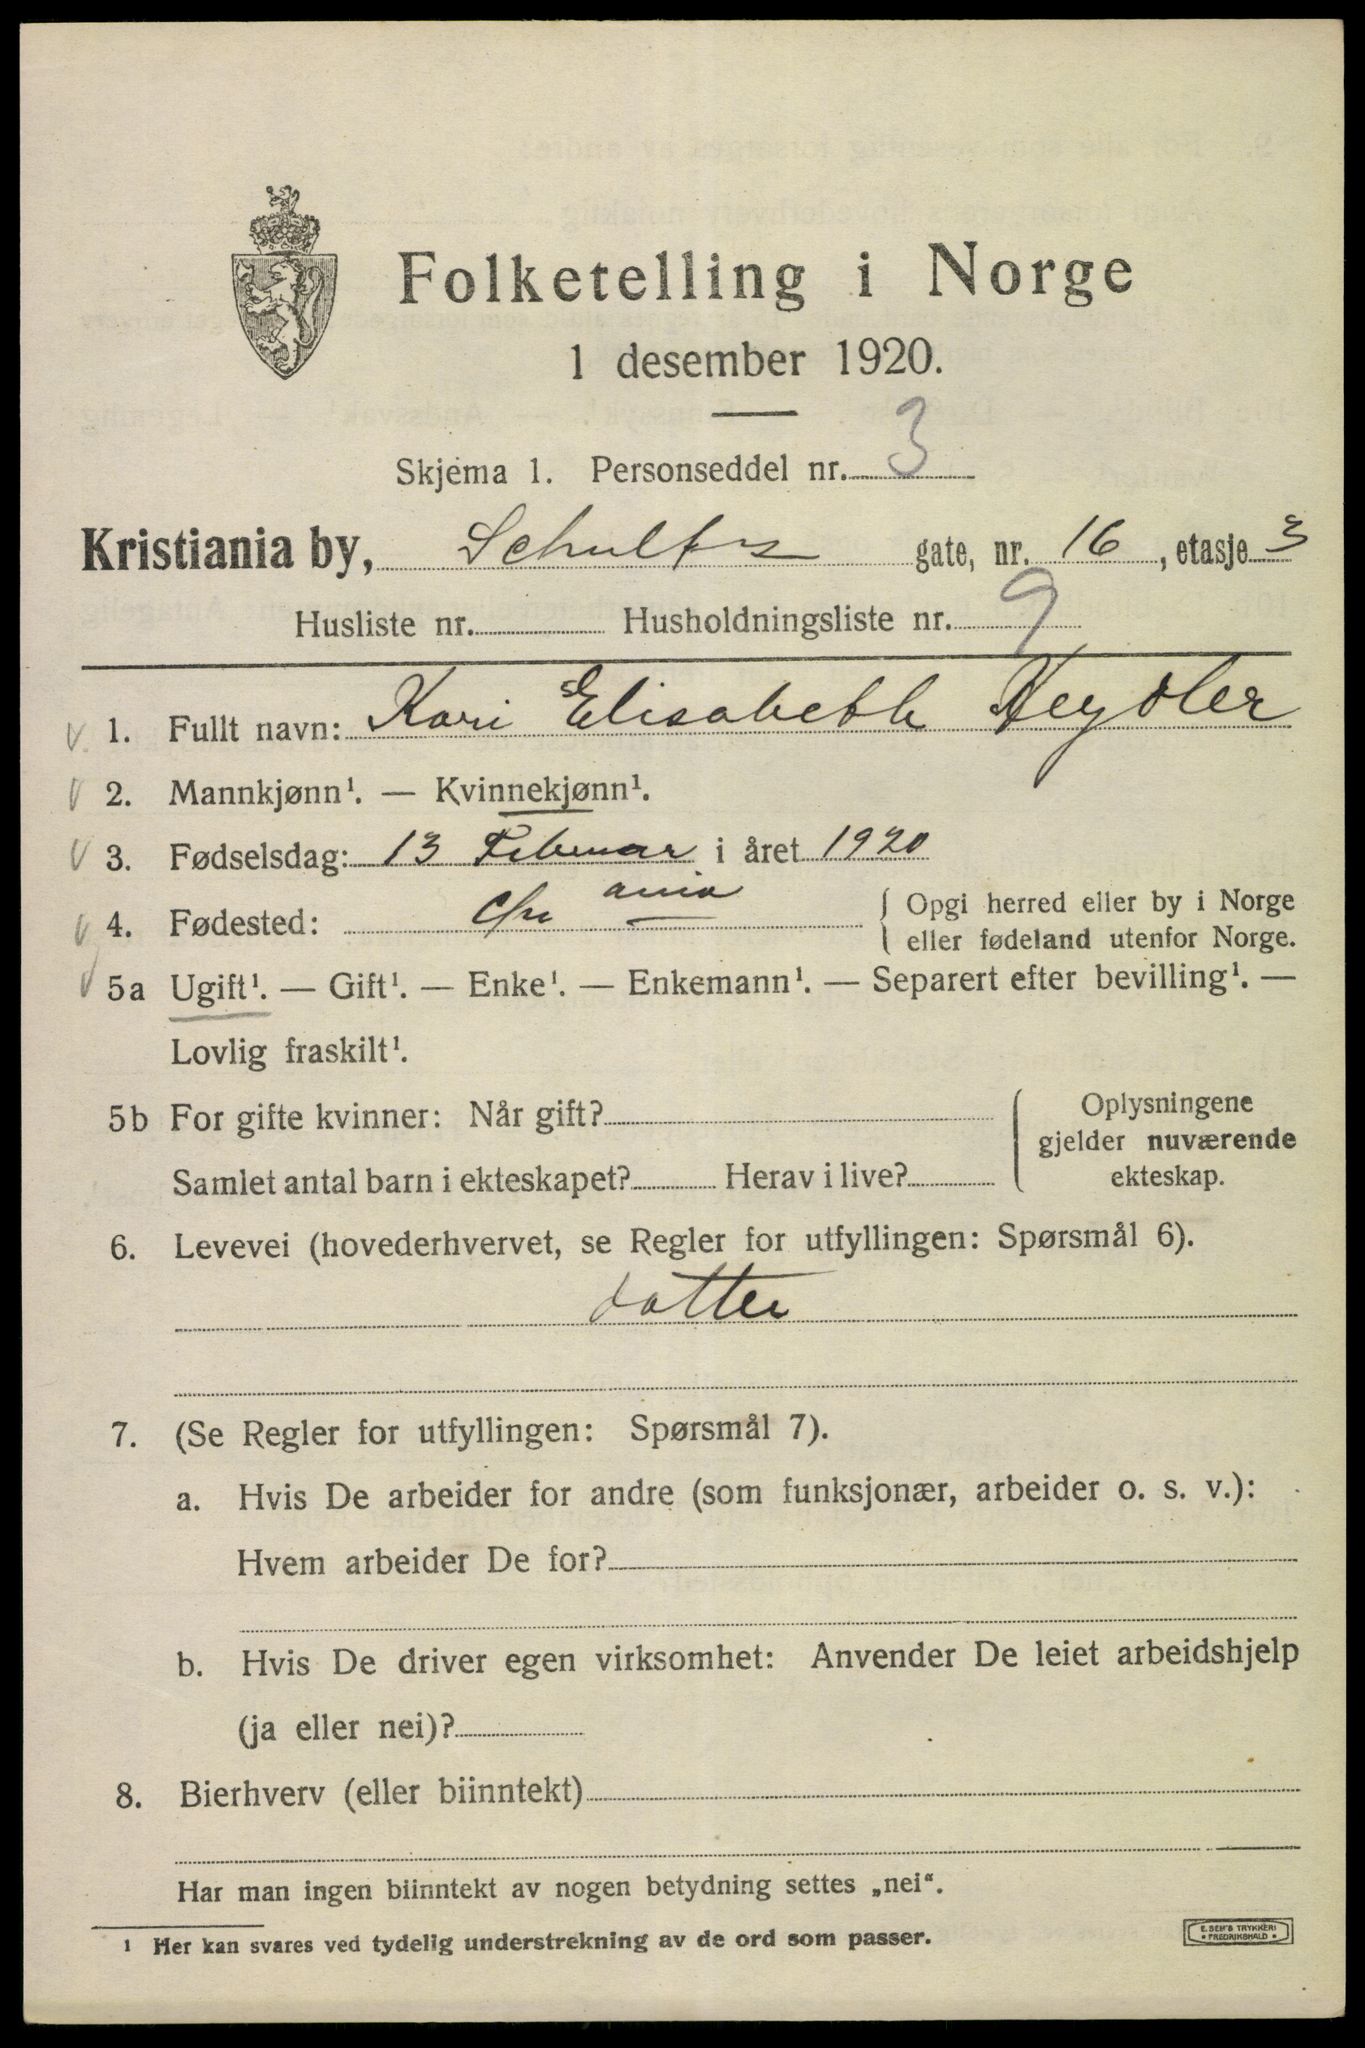 Folketelling i Norge
1 desember 1920.
Skjema 1. Personseddel nr. 3
Kristiania by, Schultz gate, nr. 16, etasje 3
Husliste nr. Husholdningsliste nr. 9
1. Fullt navn: Kari Elisabeth Heydler
2. Mannkjønn¹. — Kvinnekjønn¹.
3. Fødselsdag: 13 Februar i året 1920
4. Fødested: Chr ania { Opgi herred eller by i Norge
eller fødeland utenfor Norge.
5a Ugift¹. — Gift¹. — Enke¹. — Enkemann¹. — Separert efter bevilling¹. —
Lovlig fraskilt¹.
5b For gifte kvinner: Når gift? { Oplysningene
gjelder nuværende
Samlet antal barn i ekteskapet? Herav i live? ekteskap.
6. Levevei (hovederhvervet, se Regler for utfyllingen: Spørsmål 6).
datter
7. (Se Regler for utfyllingen: Spørsmål 7).
a. Hvis De arbeider for andre (som funksjonær, arbeider o. s. v.):
Hvem arbeider De for?
b. Hvis De driver egen virksomhet: Anvender De leiet arbeidshjelp
(ja eller nei)?
8. Bierhverv (eller biinntekt)
Har man ingen biinntekt av nogen betydning settes „nei".
¹ Her kan svares ved tydelig understrekning av de ord som passer.
E. SEM'S TRYKKERI
FREDRIKSHALD